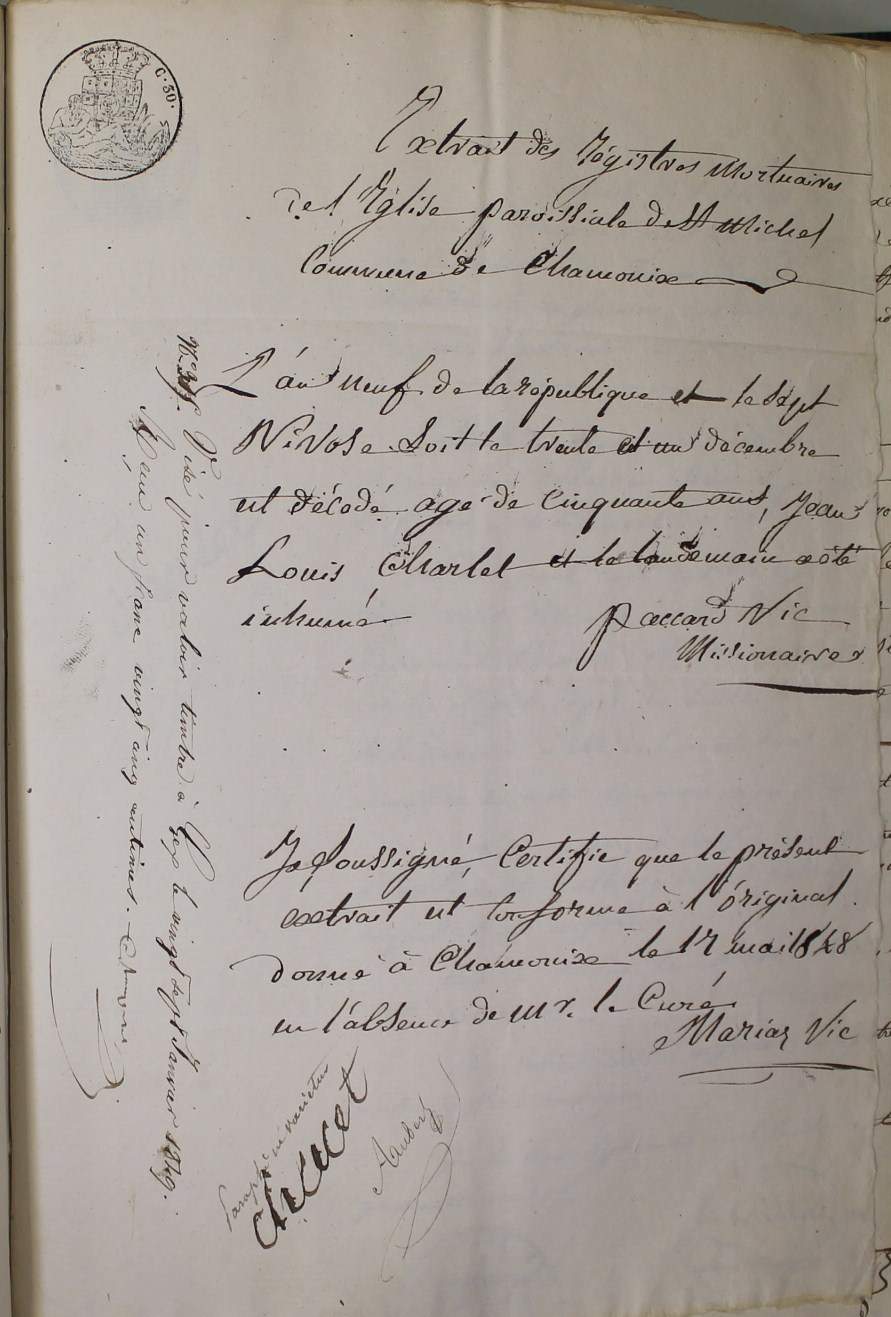 C. 50.
Extrait des Régistres Mortuaires
de l'Église paroissiale de St Michel
Commune de Chamonix
L'an neuf de la république et le sept
Nivose soit le trente et un décembre
est décédé agé de cinquante ans, Jean
Louis Charlet et le landemain a été
inhumé
Paccard Vic
Missionaire
Je soussigné, Certifie que le présent
extrait est conforme à l'original.
donné à Chamonix le 17 mai 1848
en l'absence de Mr. le Curé
Mariaz Vic
Visé pour valoir timbre à Gex le vingt sept Janvier 1849.
Reçu un franc vingt cinq centimes.
Paraphé ne varietur